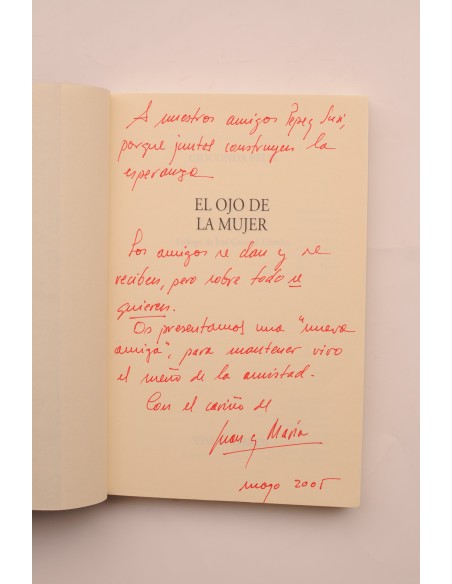 A nuestros amigos Pepe y Susi,
porque juntos construyen la
esperanza
EL OJO DE
LA MUJER
Los amigos se dan y se
reciben, pero sobre todo se
quieren.
Os presentamos una "nueva
amiga", para mantener vivo
el sueño de la amistad.
Con el cariño de
Juan y María
mayo 2005